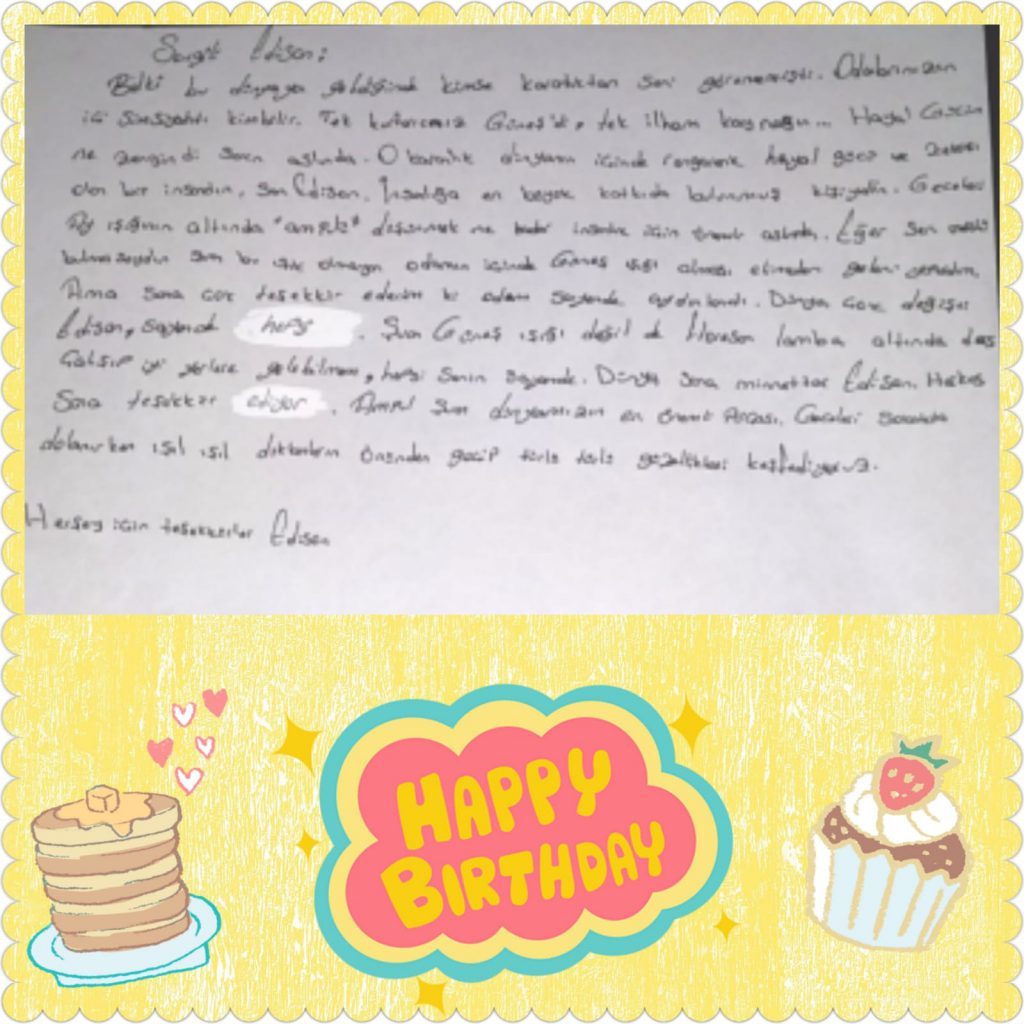 Sevgili Edison;
Belki bu dünyaya geldiğinde kimse karanlıktan seni görememişti. Odalarımızın
içi simsiyahtı kimbilir. Tek kurtarıcımız Güneş'di, tek ilham kaynağın... Hayal Gücün
ne zengindi senin aslında. O karanlık dünyanın içinde rengarenk hayal gücü ve
olan bir insandın, sen Edison. İnsanlığa en büyük katkıda bulunmuş kişiydin. Geceleri
Ay ışığının altında "ampulü" düşünmek ne kadar için önemli aslında. Eğer sen
bulmasaydın şuan bir ışık olmayan odamın içinde Güneş ışığı olması elimden gelmezdi.
Ama sana çok teşekkür ederim ki odam sayende aydınlandı. Dünya çok değişti
Edison, sayende hepsi. Şuan Güneş ışığı değil de lamba altında ders
Çalışıp iyi yerlere gelebilmem, hepsi senin sayende. Dünya sana minnettar Edison. Herkes
Sana teşekkür ediyor. Ampul şuan dünyamızın en önemli Parçası. Geceleri
dolanırken ışıl ışıl dükkanların önünden geçip türlü türlü güzellikleri keşfediyoruz.
Herşey için teşekkürler Edison
HAPPY
BIRTHDAY